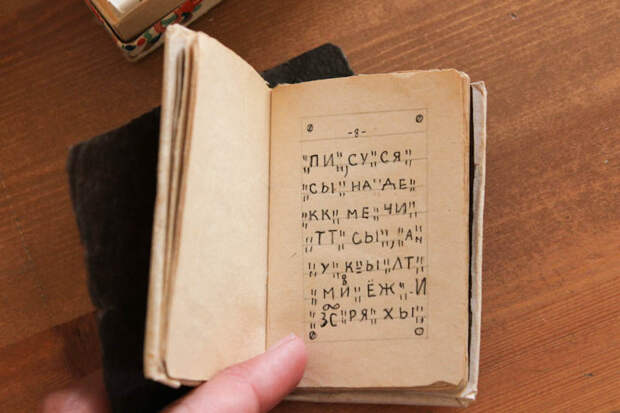 -8-
„ПИ", СУ"СЯ"
„СЫ"НА"ДЕ"
„КК„МЕ„ЧИ"
„ТТ"СЫ„,АN
„У"КЫ"ЛТ"
"МИ"ЁЖ"-И
"ЗС"РЯ"ХЫ,